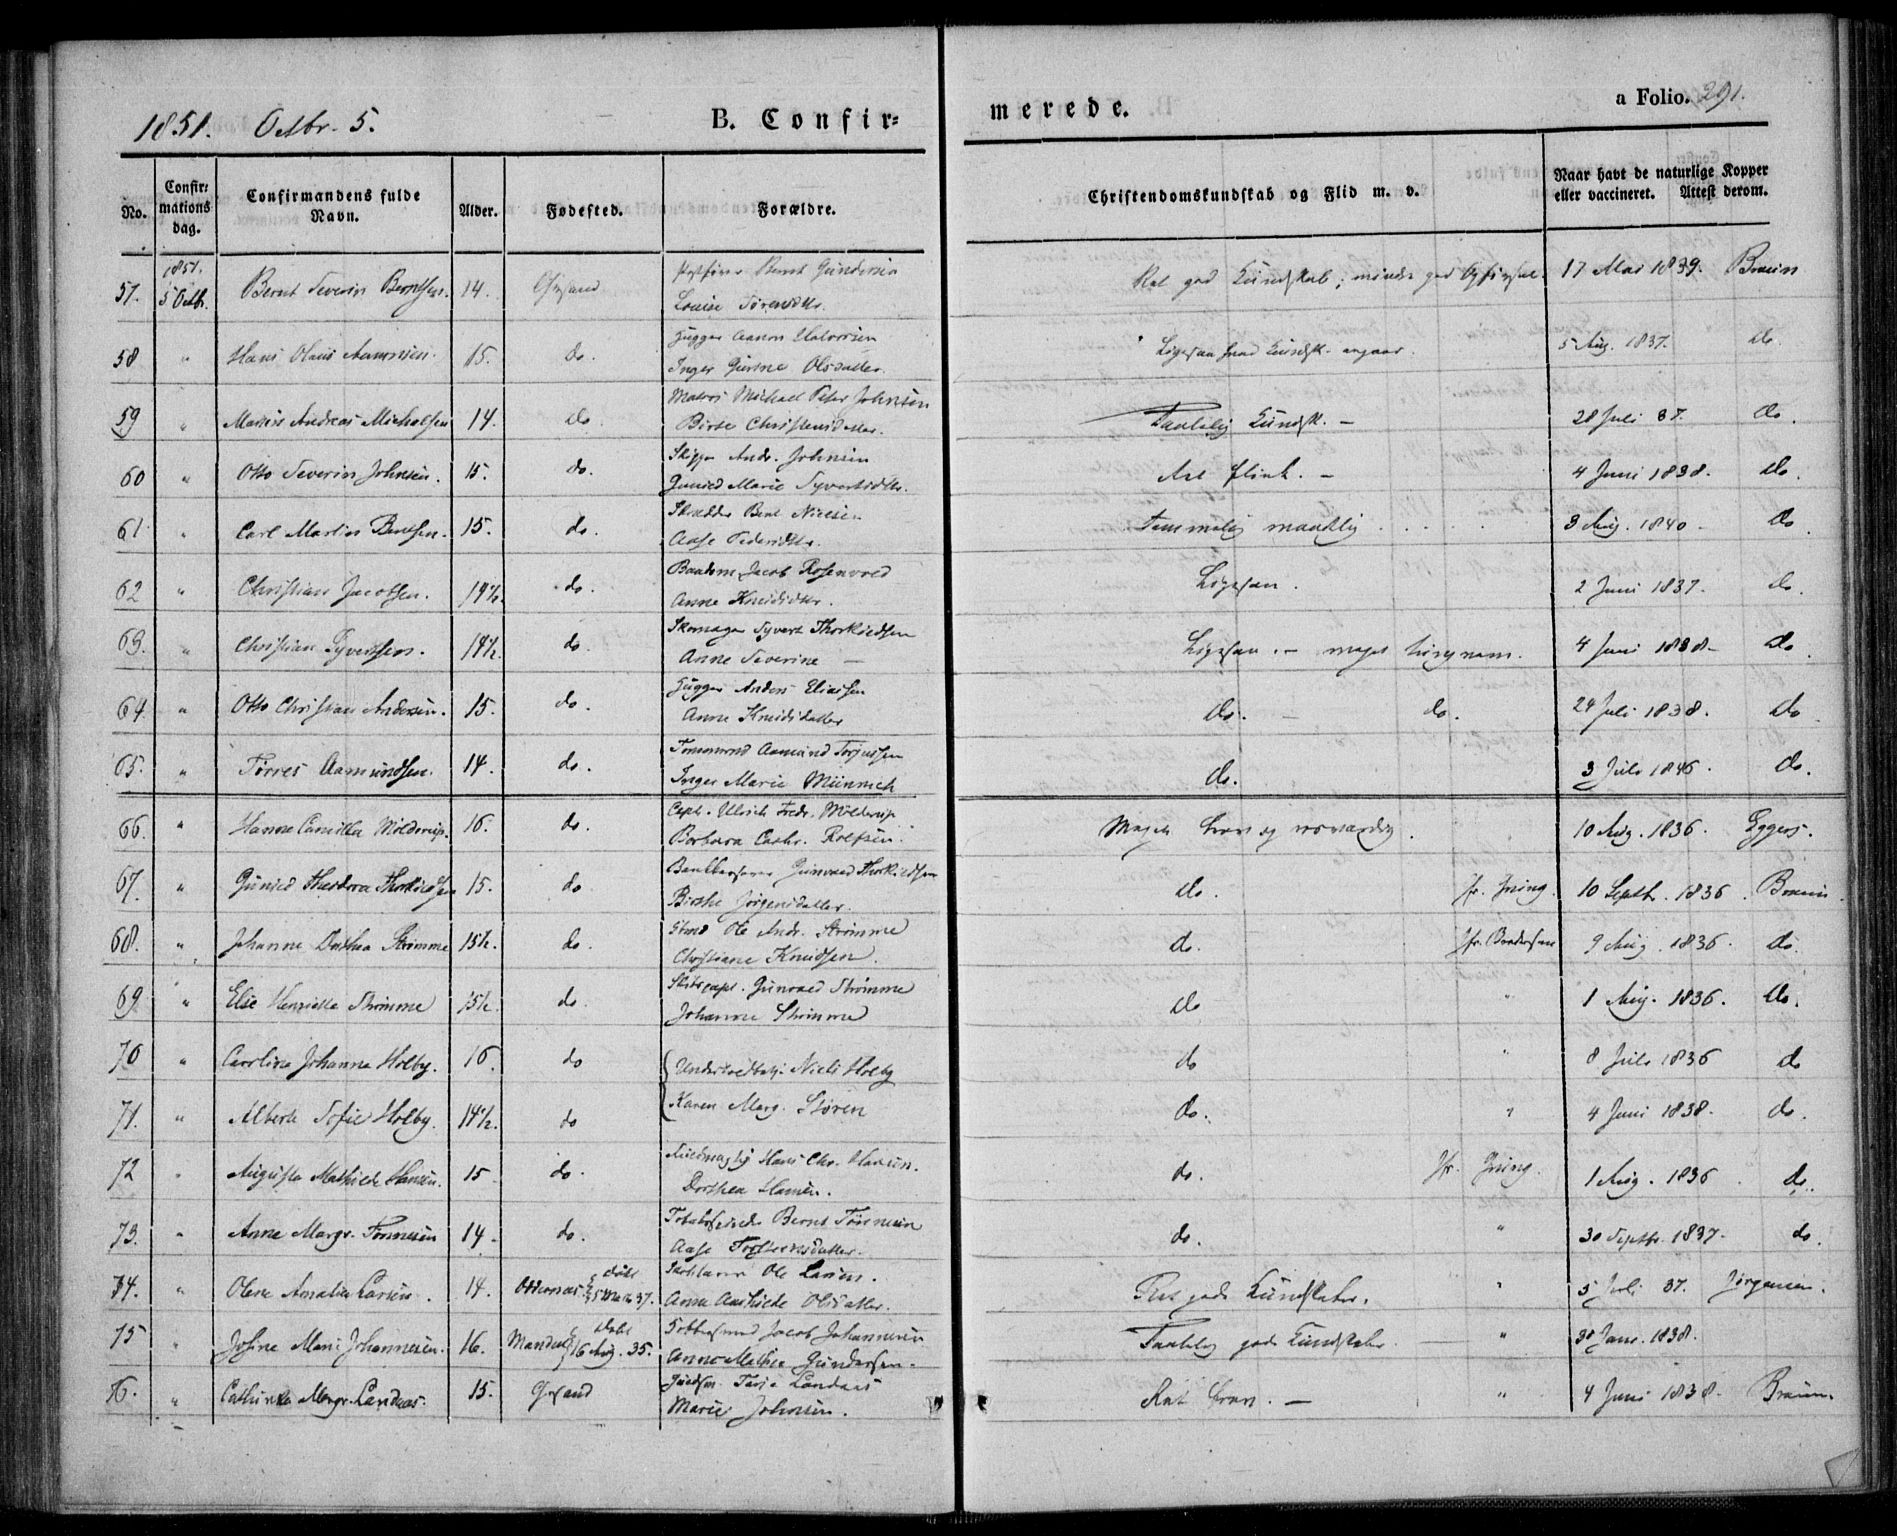 1851. Octbr. 5.
B. Confir=
merede.
a Folio. 291.
No. Confir: mations dag. Confirmandens fulde Navn. Alder. Fødested. Forældre. Christendomskundskab og Flid m. v. Naar havt de naturlige Kopper eller vaccineret. Attest derom.
57. 1851. 5 Octb. Bernt Severin Berntsen. 14. Chrsand Bernt Gundersen
Louise Tørresdtr. Ret god Kundskab; mindre god 17 Mai 1839. Bruun
58. " Hans Olaus Aanonsen. 15. do. Hugger Aanon Halvorsen
Inger Gurine Olsdatter. Ligesaa hvad Kundsk. angaar. 5 Aug. 1837. do.
59 " Marius Andreas Michaelsen 14. do. Matros Michael Peter Johnsen
Birte Christensdatter. Taalelig Kundsk. – 28 Juli 37. do.
60 " Otto Severin Johnsen. 15. do. Skipper Andr. Johnsen
Gunild Marie Syvertsdtr. Ret flink. – 4 Juni 1838. do.
61. " Carl Martin Bentsen. 15. do. Skrædder Bent Nielsen
Aase Pedersdtr. Temmelig maadelig 3 Aug. 1840. do.
62 " Christian Jacobsen. 14½. do. Baadsm. Jacob Rosenvold
Anne Knudsdtr. Ligesaa. 2 Juni 1837. do.
63. " Christian Syvertsen. 14½. do. Skomager Syvert Thorkildsen
Anne Severine – Ligesaa. – meget tungnem. 4 Juni 1838. do.
64 " Otto Christian Andersen. 15. do. Hugger Anders Eliassen
Anne Knudsdatter do. – do. 24 Juli 1838. do
65. " Tørres Aamundsen. 14. do. Tømmermd Aamund Torjussen
Inger Marie Münnich do. 3 Juli 1846. do.
66. " Hanne Camilla Mølderup. 16. do. Capt. Ulrich Fredr. Mølderup
Barbara Cathr. Rolfsen. Meget brav og 10 Aug. 1836. Eggers.
67. " Gunild Theodora Thorkildsen 15. do Gunvald Thorkildsen
Birthe Jørgensdatter. do. Jfr. Juing. 10 Septb. 1836. Bruun.
68. " Johanne Dorthea Strømme 15½. do. Ole Andr. Strømme
Christiane Knudsen. do. Jfr. Brodersen 9 Aug. 1836. do.
69. " Elie Henriette Strømme 15½. do. Skibscapt. Gunvald Strømme
Johanne Strømme do " 1 Aug. 1836. do.
70 " Caroline Johanna Holby. 16. do Undertoldbetj. Niels Holby do " 8 Juli 1836 do
71. " Alberta Sofie Holby. 14½. do Karen Marg. Støren do. " 4 Juni 1838. do.
72 " Augusta Mathilde Hansen. 15 do. Fuldmægtig Hans Chr. Hansen.
Dorthea Hansen. do. Jfr. Juing. 1 Aug. 1836. do.
73. " Anne Margr. Tønnesen 14. do. Bernt Tønnesen
Aase Torstensdatter. do. " 30 Septbr. 1837. do.
74. " Olene Amalie Larsen. 14. Oddernæs døbt 5 Marts 37. Ole Larsen.
Anne Olsdatter. Ret gode Kundskaber. " 5 Juli 37. Jørgensen.
75 " Josine Marie Johannesen. 16. Mandal døbt 16 Aug. 35. Jacob Johannesen
Anne Mathea Gundersen. Taalelig gode Kundskaber " 30 Janr. 1838.
76. " Cathinka Margr. Landaas. 15. Chrsand Terje Landaas
Marie Johnsen. Ret brav. – " 4 Juni 1838. Bruun.